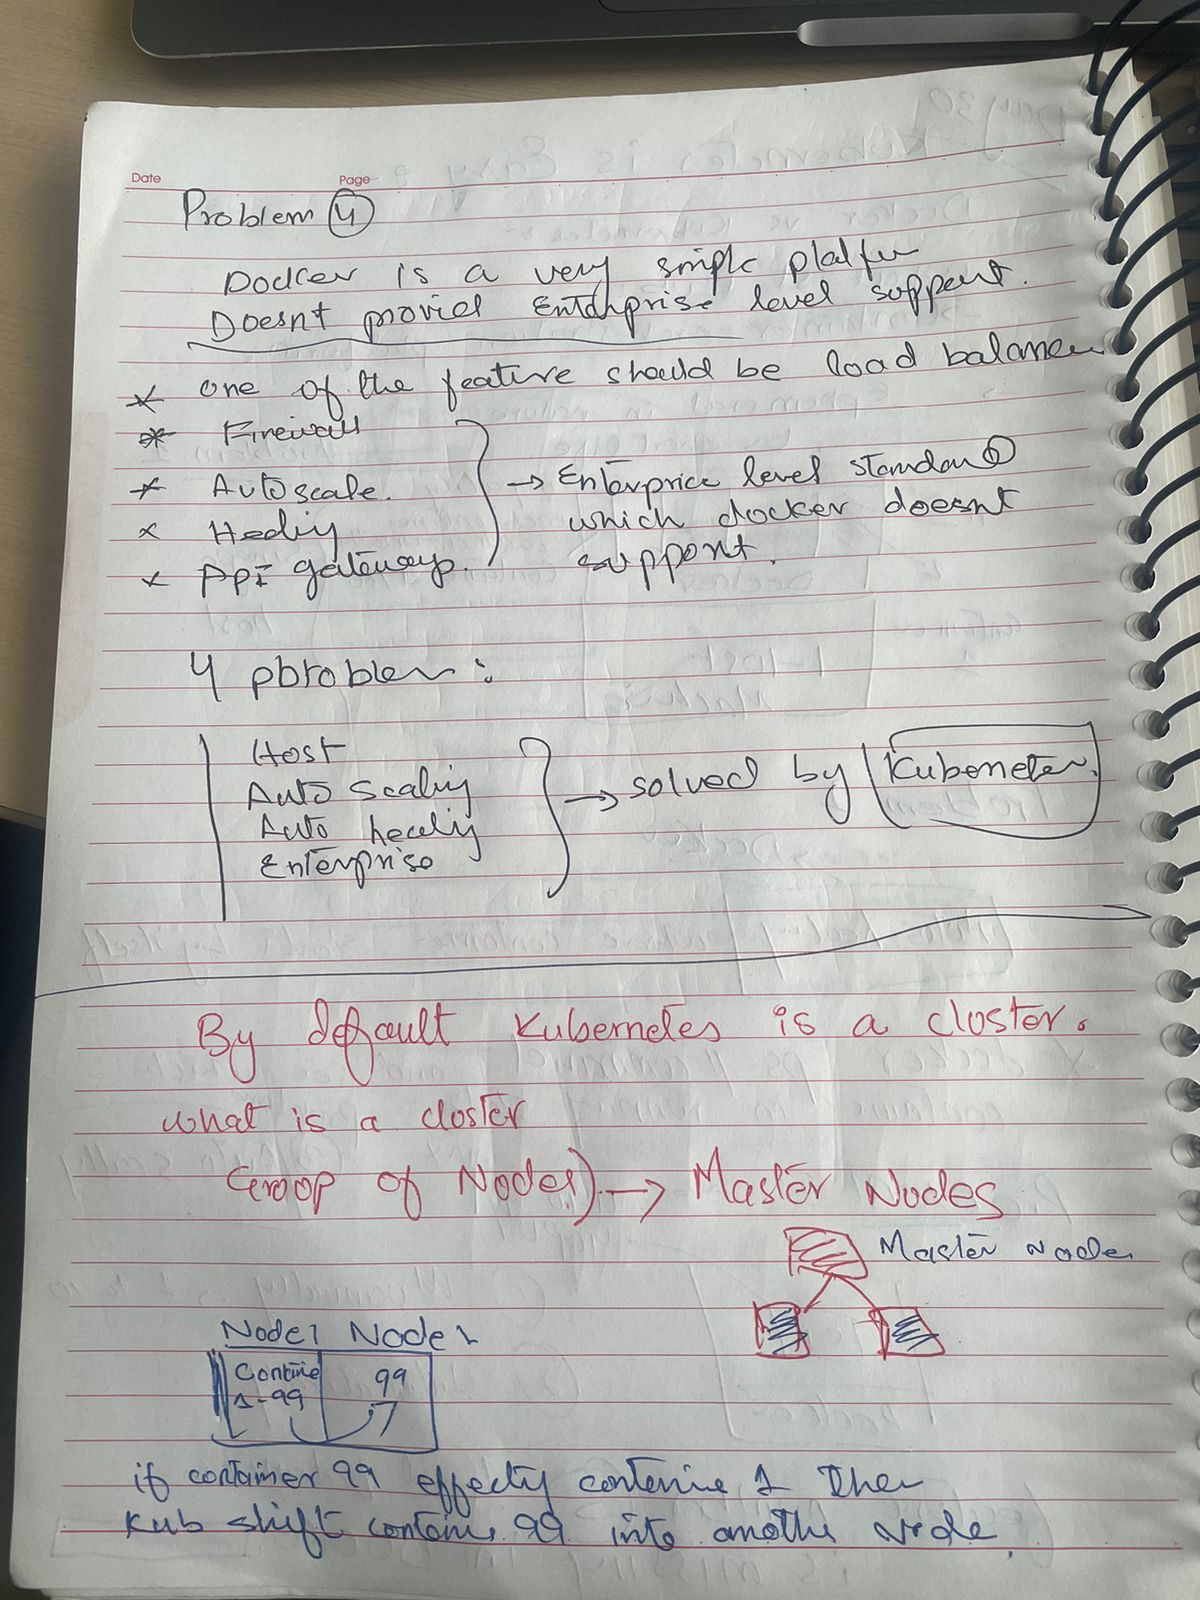 Date Page
Problem 4
Docker is a very simple platfm
Doesnt provied Enterprise level support.
* one of the feature should be load balancer
* Firewall
* Autoscale.
* Healiy
* Api gateway.
→ Enterprice level standard
which docker doesnt
support.
4 pbroblem:
Host
Auto scaliy
Auto healiy
Enterprise
→ solved by Kubernetes.
By default Kubernetes is a closter.
what is a closter
Groop of Nodes) → Master Nodes
Master Node
Node1 Node2
Containe 99
1-99
if container 99 effecty containe 1 then
Kub shift containe 99 into anothe Node.